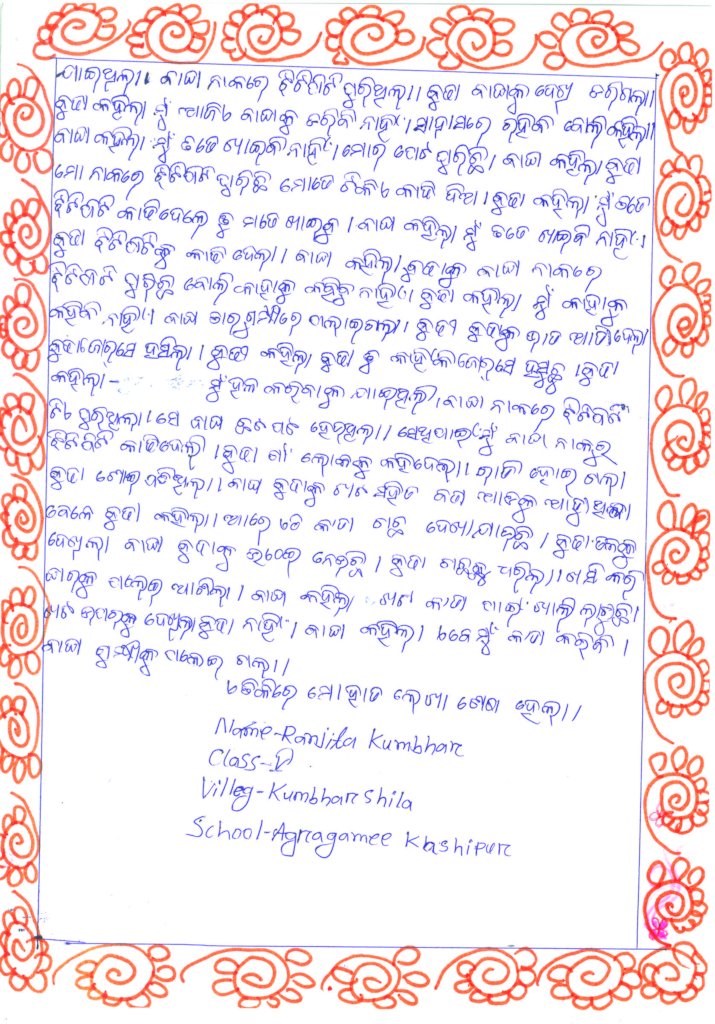 ଯାଇଥିଲା। ବାଘ ନାକରେ ଝିଟିପିଟି ପୁରିଥିଲା। ବୁଢା ବାଘକୁ ଦେଖି ଡରିଗଲା।
ବୁଢା କହିଲା ମୁଁ ଆଜି ବାଘକୁ ଡରିବି ନାହିଁ। ସାହାସରେ ରହିବି ବୋଲି କହିଲା।
ବାଘ କହିଲା ମୁଁ ତତେ ଖାଇବି ନାହିଁ। ମୋର ପେଟ ପୁରିଛି। ବାଘ କହିଲା ବୁଢା
ମୋ ନାକରେ ଝିଟିପିଟି ପୁରିଛି ମୋତେ ଟିକିଏ କାଢି ଦିଅ। ବୁଢା କହିଲା ମୁଁ ତତେ
ଝିଟିପିଟି କାଢିଦେଲେ ତୁ ମତେ ଖାଇବୁ। ବାଘ କହିଲା ମୁଁ ତତେ ଖାଇବି ନାହିଁ।
ବୁଢା ଝିଟିପିଟିକୁ କାଢି ଦେଲା। ବାଘ କହିଲା ବୁଢାକୁ ବାଘ ନାକରେ
ଝିଟିପିଟି ପୁରିଛି ବୋଲି କାହାକୁ କହିବୁ ନାହିଁ। ବୁଢା କହିଲା ମୁଁ କାହାକୁ
କହିବି ନାହିଁ। ବାଘ ପଳାଇଗଲା। ବୁଢୀ ବୁଢାକୁ ଭାତ ଆଣିଦେଲା
ବୁଢା ଜୋର୍‌ସେ ହସିଲା। ବୁଢୀ କହିଲା ବୁଢା ତୁ କାହିଁକି ଜୋର୍‌ସେ ହସୁଛୁ। ବୁଢା
କହିଲା- ମୁଁ ହଳ କରିବାକୁ ଯାଇଥିଲି, ବାଘ ନାକରେ ଝିଟିପିଟି
ଟିଏ ପୁରିଥିଲା। ସେ ବାଘ ଛଟପଟ ହେଉଥିଲା। ସେଥିପାଇଁ ମୁଁ ବାଘ ନାକରୁ
ଝିଟିପିଟି କାଢିଦେଲି। ବୁଢା ଗାଁ ଲୋକକୁ କହିଦେଲା। ରାତି ହୋଇ ଗଲା
ବୁଢା ଶୋଇ ପଡିଥିଲା। ବାଘ ବୁଢାକୁ ଖଟ ସହିତ
ବେଳେ ବୁଢା କହିଲା। ଆରେ ଏତି କାଠ ଗଛ ଦେଖାଯାଉଛି। ବୁଢା ତଳକୁ
ଦେଖିଲା ବାଘ ବୁଢାକୁ ଉଠେଇ ନେଉଛି। ବୁଢା ଗଛକୁ ଧରିଲା। ଖସି କରି
ଘରକୁ ପଳେଇ ଆସିଲା। ବାଘ କହିଲା ଖଟ କାହା ପାଇଁ ଖାଲି ଲାଗୁଛି।
ଖଟ ଉପରକୁ ଦେଖିଲା ବୁଢା ନାହିଁ। ବାଘ କହିଲା ଏବେ ମୁଁ କଣ କରିବି।
ବାଘ ପଳେଇ ଗଲା।
ଏତିକିରେ ମୋହାତ ଲେଖା ଶେଷ ହେଲା।
Name-Ranjita Kumbhar
Class-V
Villeg-Kumbhar Shila
School-Agragamee Kashipur